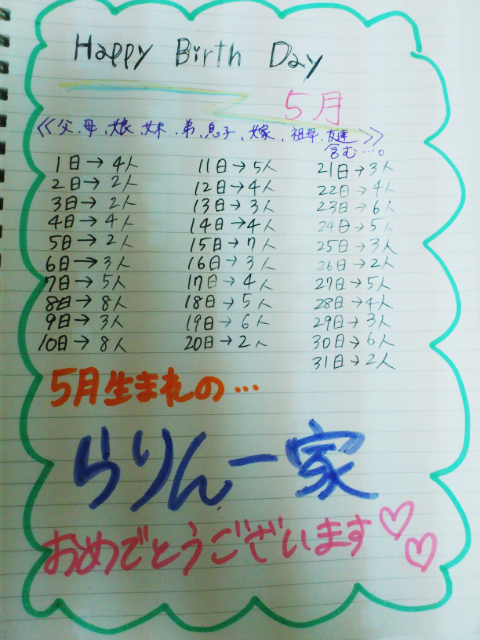 Happy Birth Day
5月
≪父、母、娘、妹、弟、息子、嫁、祖母、友達≫
含む…。
1日→4人
2日→2人
3日→2人
4日→4人
5日→2人
6日→3人
7日→5人
8日→8人
9日→3人
10日→8人
11日→5人
12日→4人
13日→3人
14日→4人
15日→7人
16日→3人
17日→4人
18日→5人
19日→6人
20日→2人
21日→3人
22日→4人
23日→6人
24日→5人
25日→3人
26日→2人
27日→5人
28日→4人
29日→3人
30日→6人
31日→2人
5月生まれの…
らりん一家
おめでとうございます♡♡